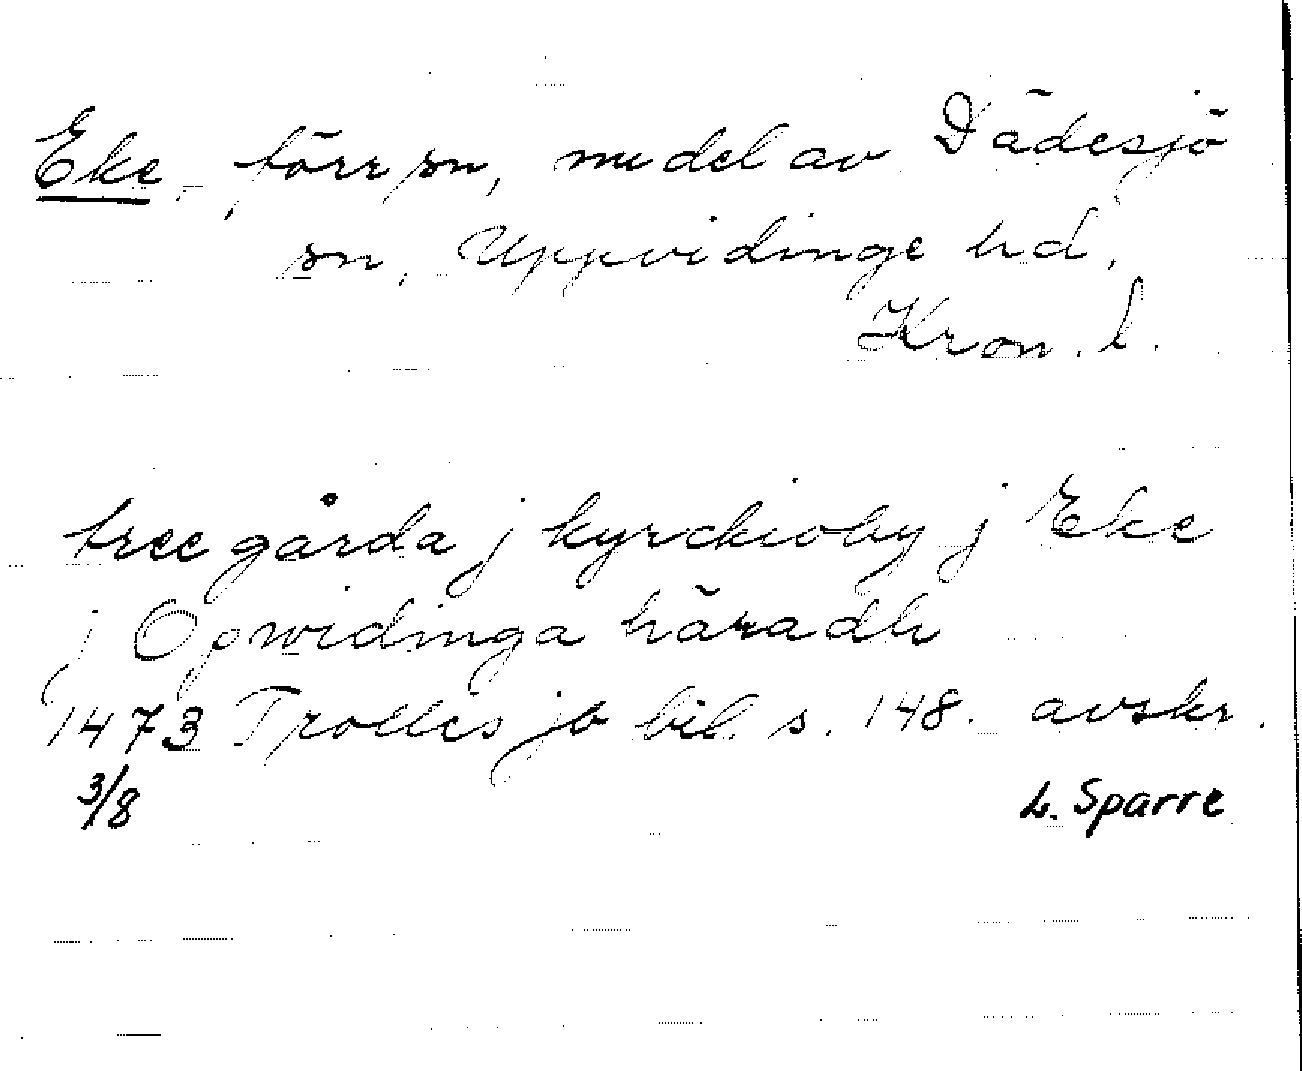 Eke, förr sn, nu del av Dädesjö
sn, Uppvidinge hd,
Kron. l.
tree gårda j kyrckioby j Eke
j Opwidinga häradh
1473 Trolles jb bil. s. 148. avskr.
3/8 L. Sparre